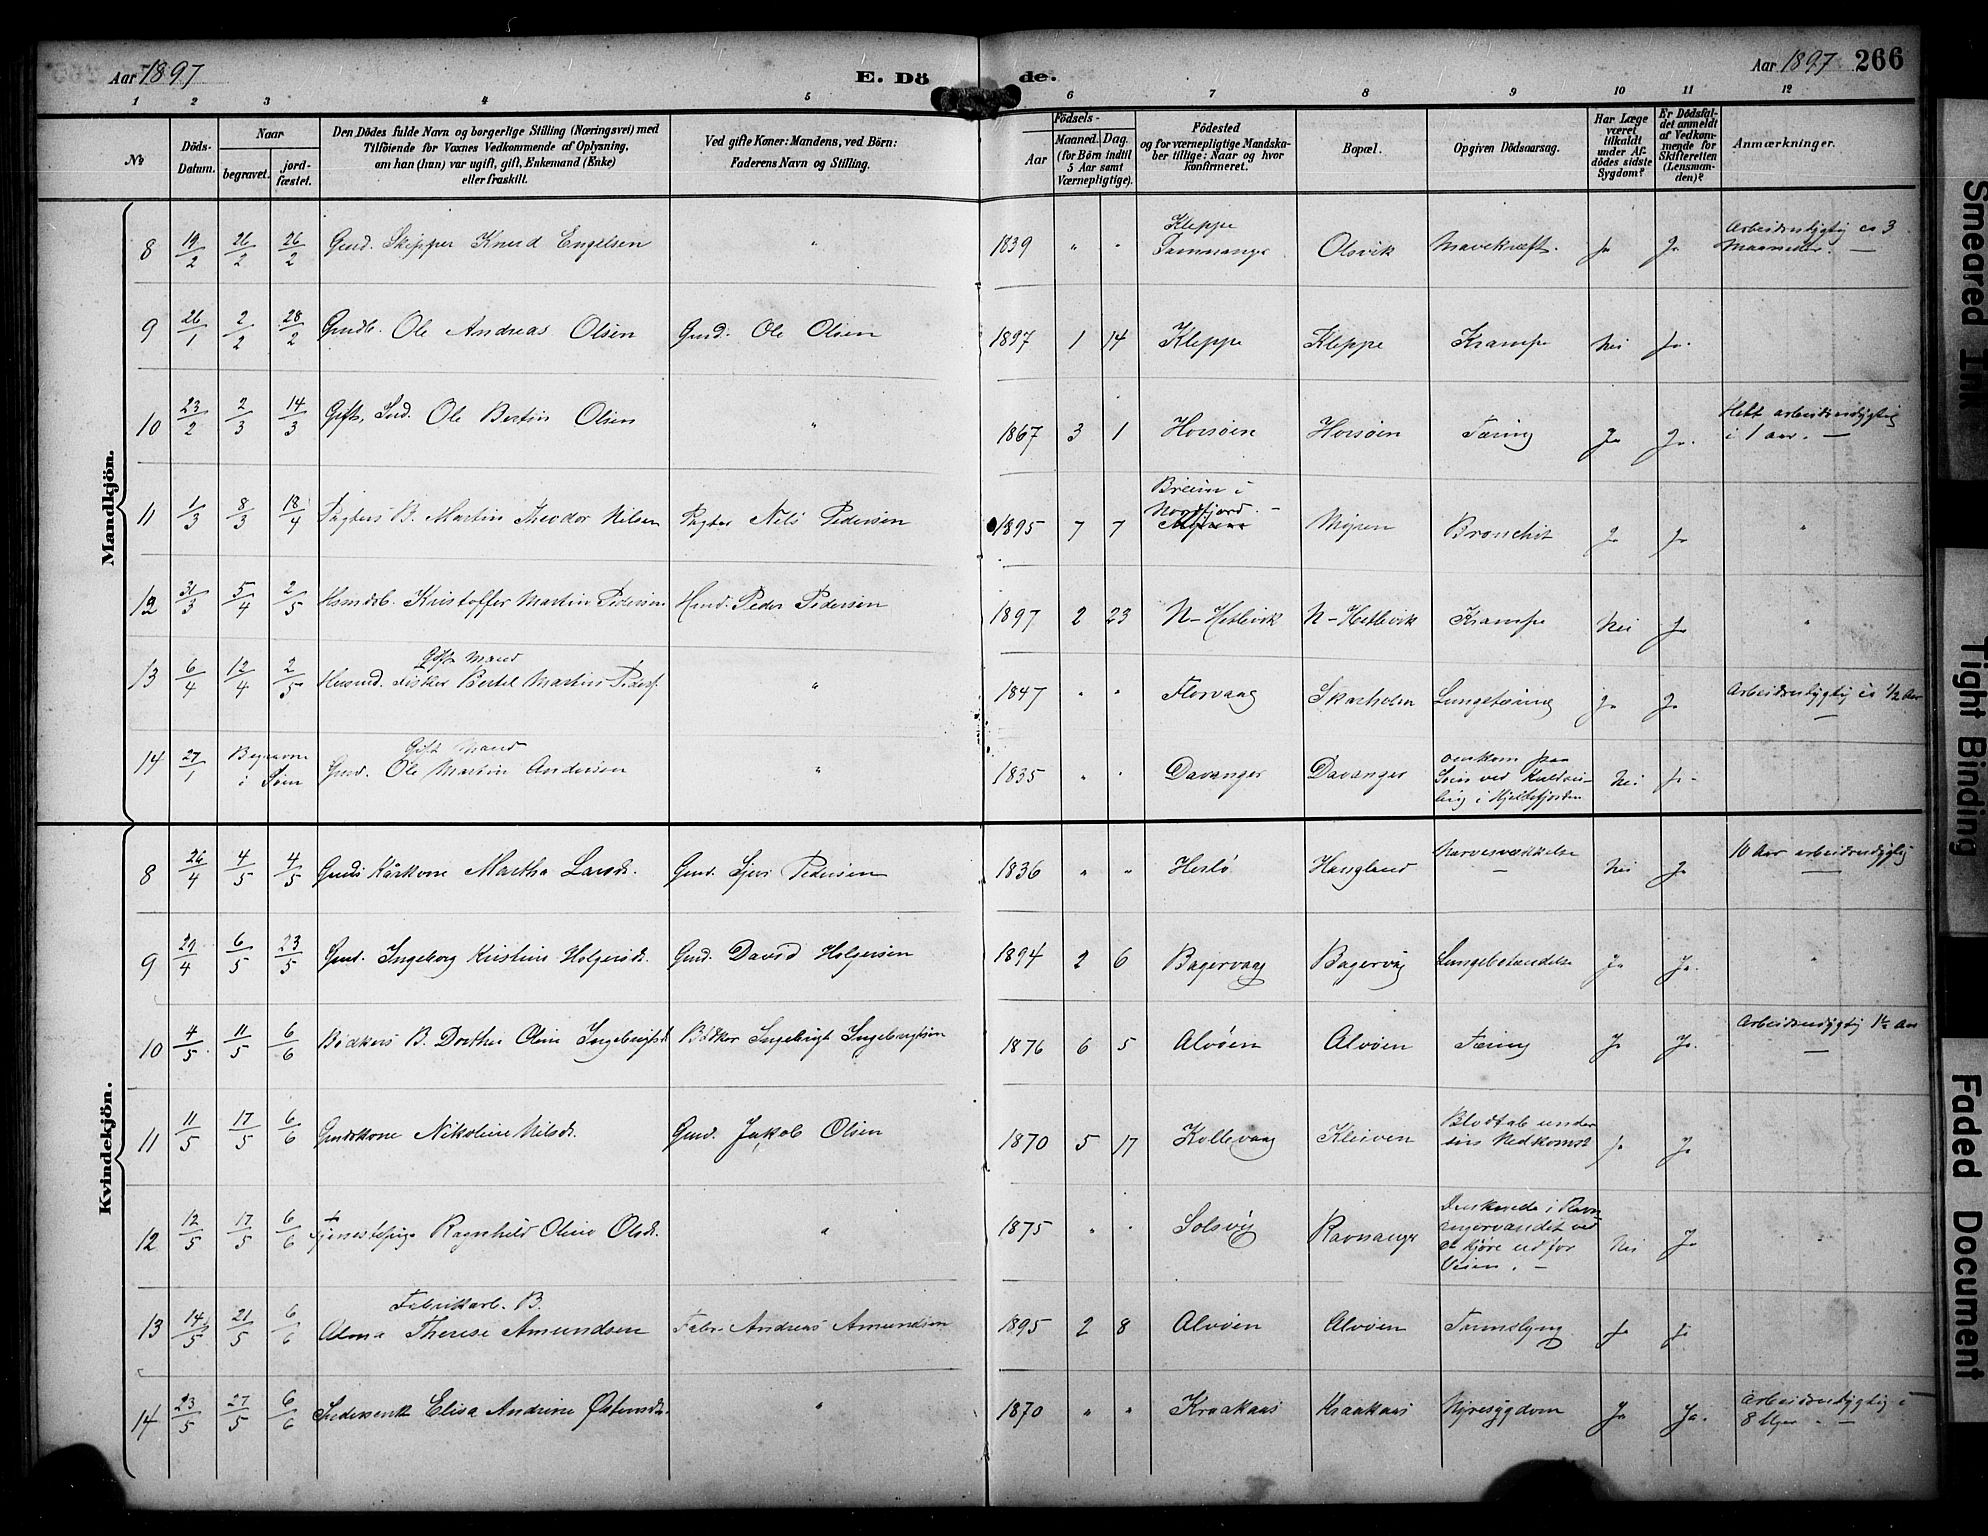 Aar 1897
E. Dö de.
Aar 1897 266
1 2 3 4 5 6 7 8 9 10 11 12
No
Döds-Datum.
Naar
begravet.
jord-fæstet.
Den Dödes fulde Navn og borgerlige Stilling (Næringsvei) med
Tilföiende for Voxnes Vedkommende af Oplysning,
om han (hun) var ugift, gift, Enkemand (Enke)
eller fraskilt.
Ved gifte Koner: Mandens, ved Börn:
Faderens Navn og Stilling.
Födsels-
Aar
Maaned. Dag.
(for Börn indtil
5 Aar samt
Værnepligtige).
Födested
og for værnepligtige Mandska-
ber tillige: Naar og hvor
konfirmeret.
Bopæl.
Opgiven Dödsaarsag.
Har Læge
været
tilkaldt
under Af-
dödes sidste
Sygdom?
Er Dödsfal-
det anmeldt
af Vedkom-
mende for
Skifteretten
(Lensman-
den)?
Anmærkninger.
Mandkjön.
8 19/2 26/2 26/2 Gmd. Skipper Knud Engelsen " 1839 " " Kleppe Olsvik Mavekræft. Ja Ja Arbeidsudygtig ca 3 Maaneder. —
9 26/1 2/2 28/2 Gmdb. Ole Andreas Olsen Gmd. Ole Olsen 1897 1 14 Kleppe Kleppe Krampe Nei Ja.
10 23/2 2/3 14/3 Gift, Ole Bertin Olsen " 1867 3 1 Horsøen Horsøen Tæring Ja Ja. Helt arbeidsudygtig i 1 aar. —
11 1/3 8/3 18/4 Pagters B. Martin Theodor Nilsen Pagter Nils Pedersen 1895 7 7 Breim i Nordfjord. — Mjøren Bronchit Ja Ja "
12 31/3 5/4 2/5 Husmdsb. Kristoffer Martin Pedersen Husmd. Peder Pedersen 1897 2 23 N-Hetlevik N-Hetlevik Krampe Nei Ja "
13 6/4 12/4 2/5 Gift Mand
Husmd. Fisker Bertel Martin Peders. " 1847 " " Florvaag Skarholm Lungetæring Ja Ja Arbeidsudygtig ca 1/2 Aar —
14 27/1 Begraven i Søen Gift Mand
Gmd. Ole Martin Andersen " 1835 " " Davanger Davanger omkom paa Søen ved i Hjeltefjorden Nei Ja —
Kvindekjön.
8 26/4 4/5 4/5 Gmds Kårkone Martha Larsdr. Gmd. Sjur Pedersen 1836 " " Herlø Haugland Nervesvækkelse — Nei Ja 10 Aar arbeidsudygtig —
9 29/4 6/5 23/5 Gmd. Ingeborg Kristine Holgersdr. Gmd. David Holgersen 1894 2 6 Bagervaag Bagervåg Lungebetændelse Ja Ja. "
10 4/5 11/5 6/6 Bødkers B. Dorthea Oline Ingebrigtsd. Bødker Ingebrigt Ingebrigtsen 1876 6 5 Alvøen Alvøen Tæring Ja Ja. Arbeidsudygtig 1½ Aar —
11 11/5 17/5 6/6 Gmdskone Nikoline Nilsdr. Gmd. Jakob Olsen 1870 5 17 Kollevaag Kleiven Blodtab under sin Nedkomst Ja Ja
12 12/5 17/5 6/6 Tjenestepige Ragnhild Oline Olsdr. " 1875 " " Solsvig Ravnanger Druknede i Ravnangervandet ved at kjøre ud for Veien. — Nei Ja "
13 14/5 21/5 6/6 Fabrikarb. B.
Alma Therese Amundsen Fabr. Andreas Amundsen 1895 2 8 Alvøen Alvøen Tarmslyng Ja Ja.
14 23/5 27/5 6/6 Elisa Andrine Østensdr. " 1870 " " Kraakaas Kraakaas Nyresygdom Ja Ja. Arbeidsudygtig i 8 Uger. —
Smeared Ink
Tight Binding
Faded Document